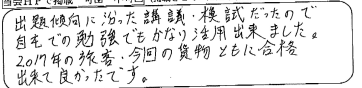 出題傾向に沿った講議・模試だったので
自宅での勉強でもかなり活用出来ました。
2017年の旅客・今回の貨物ともに合格
出来て良かったです。